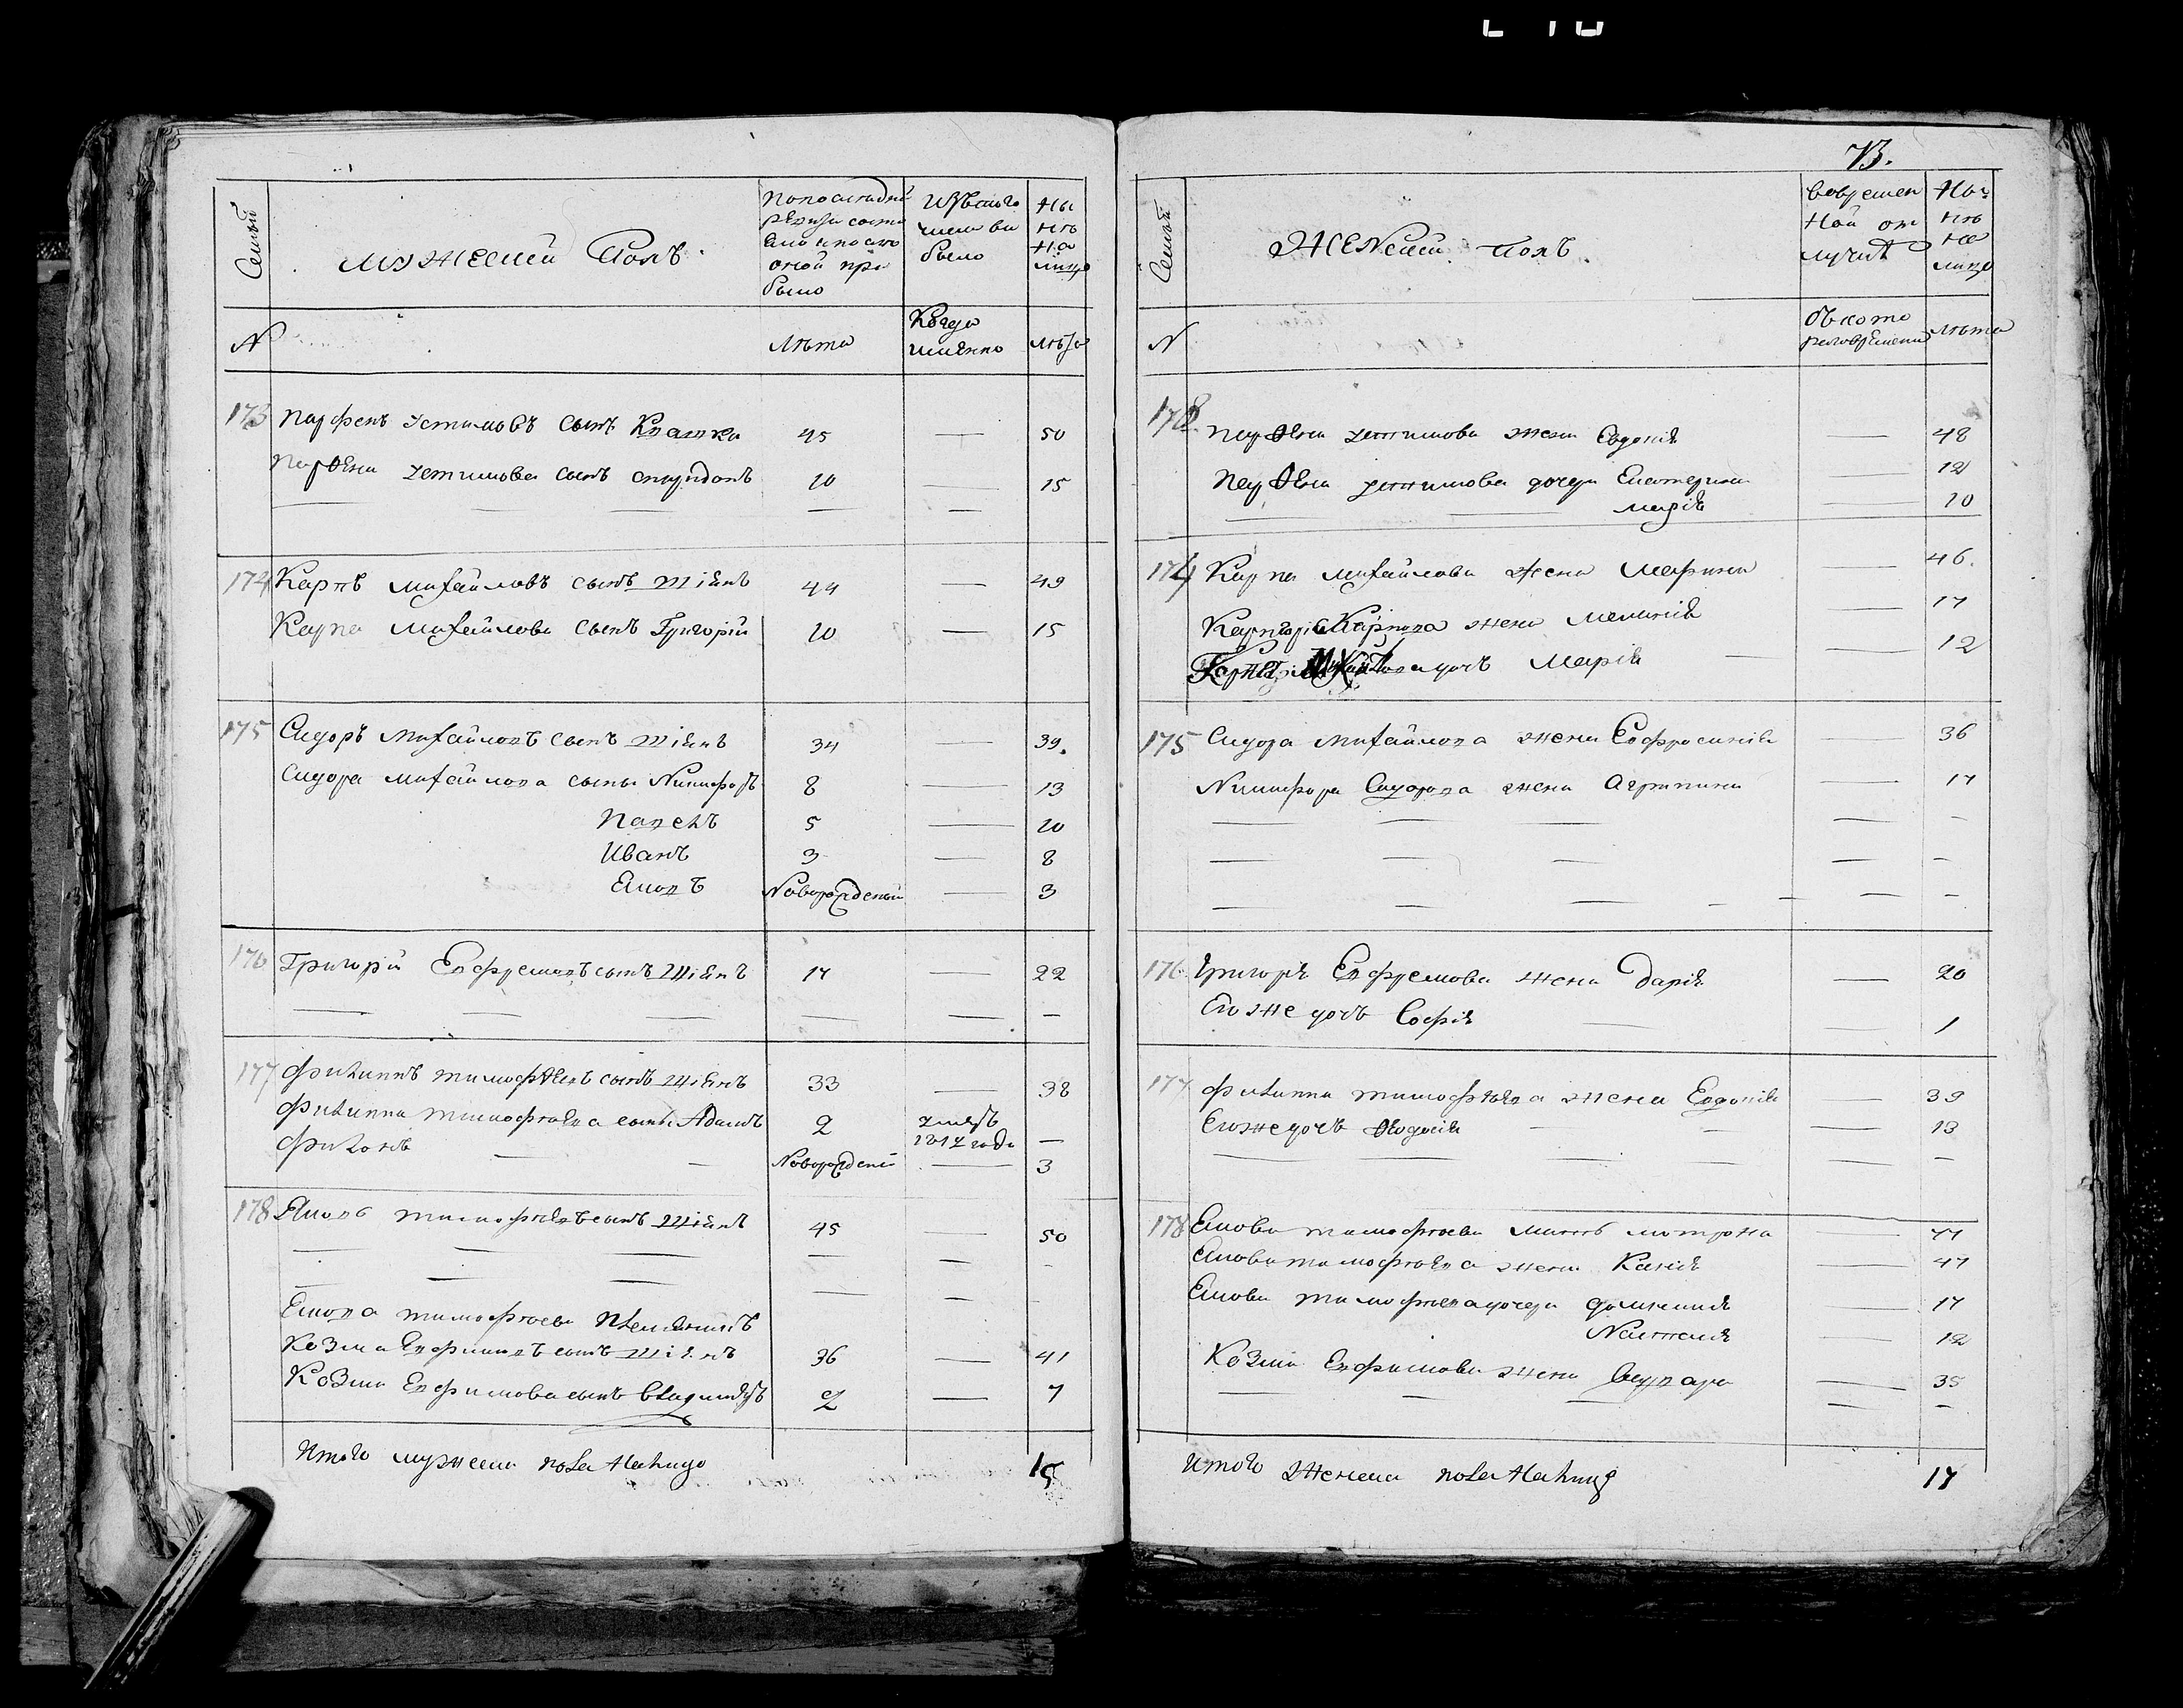 73.
Семьи
мужеский Полъ
По последней
ревизии состо
яло и после
оной при
было
Изъ того
числа вы
было
Ны
нѣ
на
лицо
N
Лѣта
Когда
имянно
лѣта
173 Парфенъ Устимовъ сынъ 45 — 50
Парѳена Устимова сынъ Спиридонъ 10 — 15
174 Карпъ Михайловъ сынъ 44 — 49
Карпа Михайлова сынъ Григорій 10 — 15
175 Сидоръ Михайловъ сынъ 34 — 39.
Сидора Михайлова сыны Никифоръ 8 — 13
Павелъ 5 — 10
Иванъ 3 — 8
Яковъ Новорожденый — 3
176 Григорій Ефремовъ сынъ 17 — 22
177 Филиппъ Тимофѣевъ сынъ 33 — 38
Филиппа Тимофѣева сыны Адамъ 2 умеръ
1817 года —
Филонъ Новорожденый — 3
178 Яковъ Тимофѣевъ сынъ 45 — 50
Якова Тимофѣева Племянникъ
Козма Ефимовъ сынъ 36 — 41
Козмы Ефимова сынъ Владимѣръ 2 — 7
Итого мужеска пола на лицо 15
Семьи
Женский полъ
Во времен
ной от
лучкѣ
Ны
нѣ
на
лицо
N
Съ кото
рого времени
лѣта
173 Парѳена Устимова жена Евдокія — 48
Парѳена Устимова дочери Екатерина — 12
Марія — 10
174 Карпа Михайлова жена Марина — 46.
Карпова жена Меланія — 17
дочь Марія — 12
175 Сидора Михайлова жена Ефросинія — 36
Никифора Сидорова жена Агрипина — 17
176 Григорія Ефремова жена Дарія — 20
Его же дочь Софія — 1
177 Филиппа Тимофѣева жена Евдокія — 39
Его же дочь Ѳеодосія — 13
178 Якова Тимофѣева мать Мотрона — 77
Якова Тимофѣева жена Ксенія — 47
Якова Тимофѣева дочери Домникия — 17
Наталия — 12
Козмы Ефимова жена Варвара — 35
Итого Женска пола на лицо 17